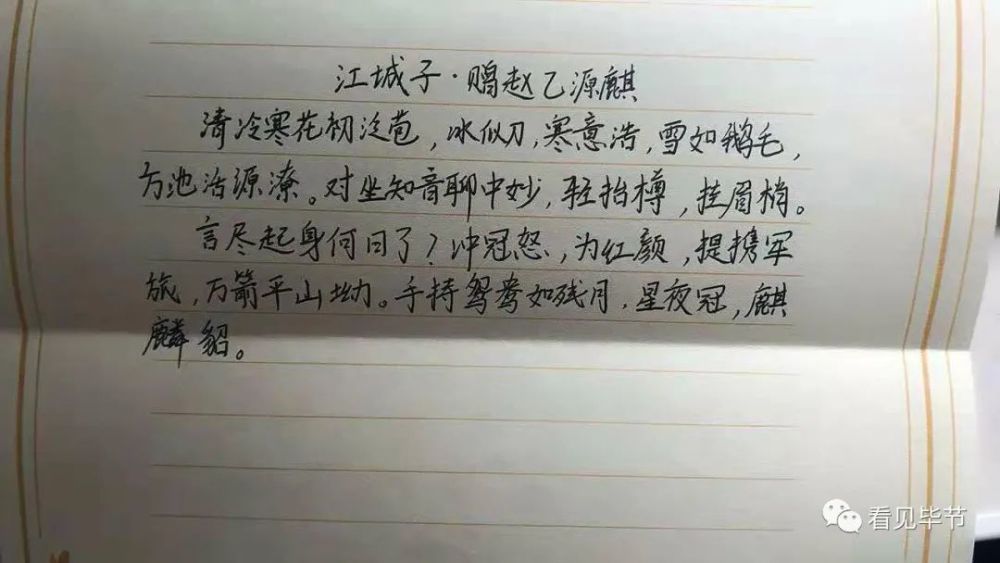 江城子·赐赵乙源麒
清冷寒花初泛苞，冰似刀，寒意浩，雪如鹅毛，
方池活源潦。对坐知音聊中妙，轻抬樽，挂眉梢。
言尽起身何日了？冲冠怒，为红颜，提携军
旅，万箭平山坳。手持鸳鸯如残月，星夜冠，麒
麟貂。
看见毕节